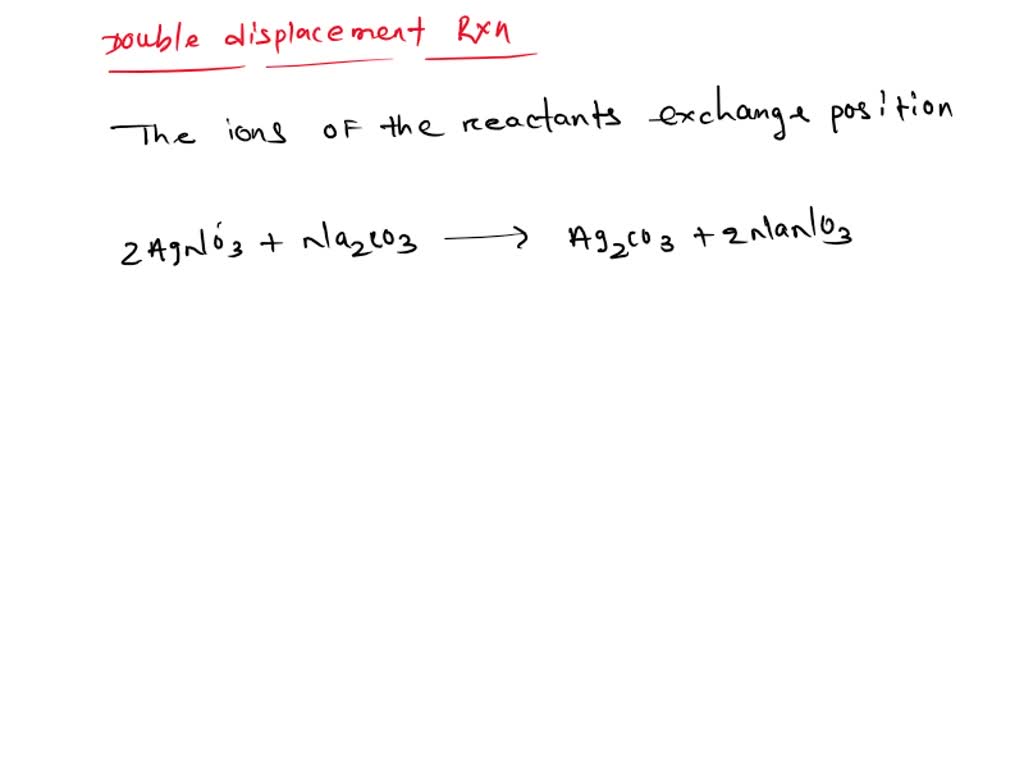 Double displacement Rxn
The ions of the reactants exchange position
2AgNO3 + Na2CO3 → Ag2CO3 + 2NaNO3